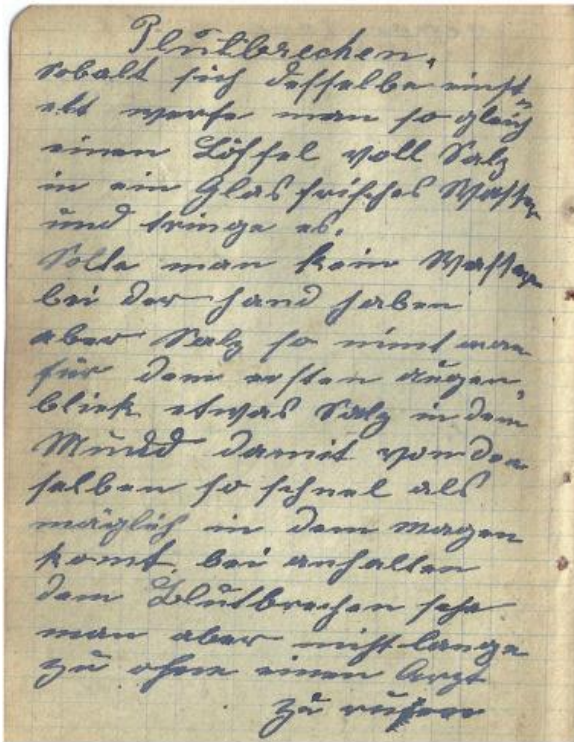 Plutbrechen.
sobalt sich desselbe einst,
elt werfe man so gleich
einen Löffel voll Salz
in ein Glas frisches Wasser
und tringe es.
Solte man kein Wasser
bei der hand haben
aber Salz so nimt man
für dem ersten augen,
blick etwas Salz in dem
Mund damit von dem
selben so schnel als
möglich in dem magen
komt, bei anhalten
dem Blutbrechen sehe
man aber nicht lange
zu ohne einen Arzt
zu rufen